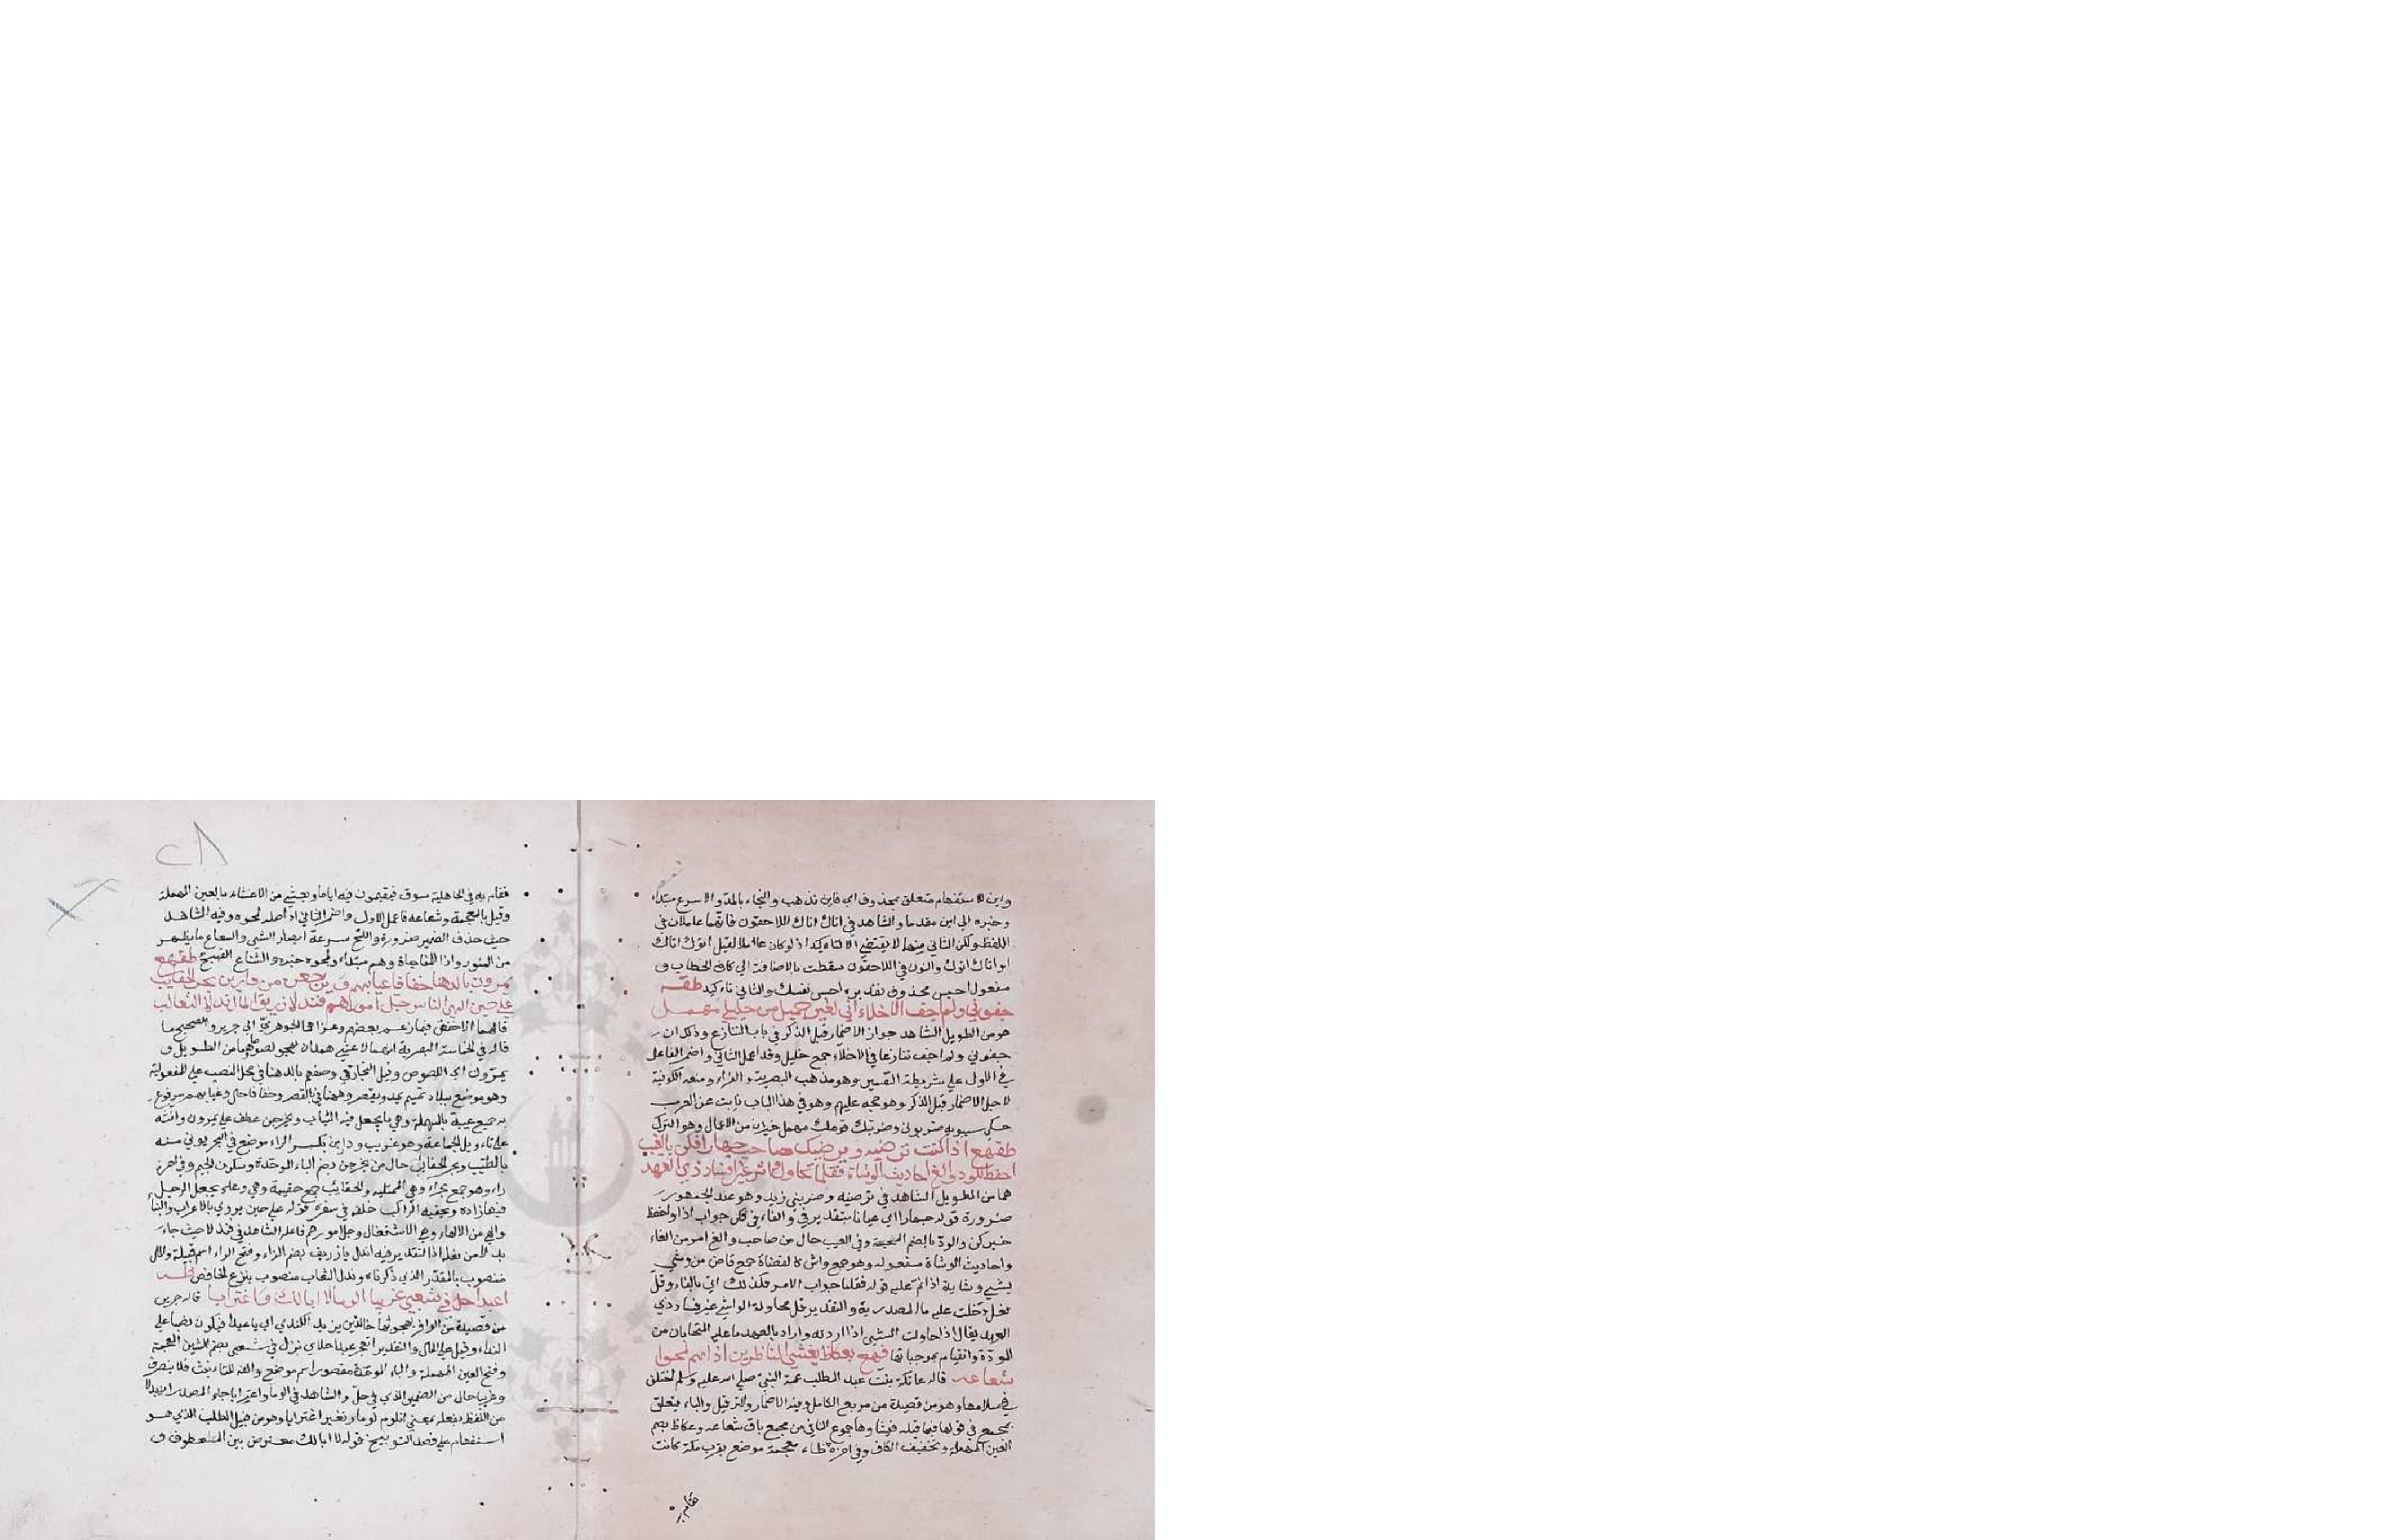 واين للاستفهام متعلق بمحذوف اي فاين تذهب والنجاء بالمد والاسرع مبتداء
وخبره الي اين مقدما والشاهد في اتاك اتاك اللاحقون فانهما عاملان في
اللفظ ولكن الثاني منهما لا يقتضي الا لتاكيد اذ لوكان عاملا لقيل اتوك اتاك
او اتاك اتوك والنون في اللاحقون سقطت بالاضافة الي كاف الخطاب و
مفعول احبس محذوف تقديره احبس نفسك والثاني تاكيد طقه
جفوني ولم اجف الاخلاء انني لغير جميل من خليلي مهمل
هو من الطويل الشاهد جواز الاضمار قبل الذكر في باب التنازع وذلك ان
جفوني ولم اجف تنازعا في الاخلاء جمع خليل وقد اعمل الثاني واضمر الفاعل
في الاول علي شريطة التفسير وهو مذهب البصرية والفراء ومنعه الكوفية
لاجل الاضمار قبل الذكر وهو حجه عليهم وهو في هذا الباب ثابت عن العرب
حكي سيبويه ضربوني وضربت قومك مهمل خبر ان من الاهمال وهو الترك
طقهع اذا كنت ترضيه ويرضيك صاحب جهارا فكن بالغيب
احفظ للود والغ احاديث الوشاة فقلما يحاول واش غير افساد ذي العهد
هما من الطويل الشاهد في ترضيه وضربني زيد وهو عند الجمهور
ضرورة قوله جهارا اي عيانا بتقدير في والفاء في فكن جواب اذا واحفظ
خبر كن والود بالضم المحبة وفي الغيب حال من صاحب والغ امر من الغاء
واحاديث الوشاة مفعوله وهو جمع واش كالقضاة جمع قاض من وشي
يشي وشاية اذا نم عليه قوله فقلما جواب الامر فلذلك اتي بالفاء وقل
فعل دخلت عليه ما المصدرية والتقدير قل محاولة الواشي غير فساد ذي
العهد يقال اذا حاولت الشيي اذا اردته واراد بالعهد ما عليه المتحابان من
المودة والقيام بموجباتها فهع بعكاظ يغشي الناظرين اذا هم لمحوا
شعاعه قاله عاتكة بنت عبد المطلب عمة النبي صلي الله عليه وسلم اختلف
في اسلامها وهو من قصيدة من مربع الكامل وفيه الاضمار والترفيل والباء يتعلق
بمجمع في قولها فيما قبله
العين المهملة وتخفيف الكاف وفي اخره ظاء معجمة موضع بقرب مكة كانت
تقام به
٢٨
تقام به في الجاهلية سوق فيقيمون فيه اياما ويعشي من الاعشاء بالعين المهملة
وقيل بالمعجمة وشعاعه فاعمل الاول واضمر الثاني اذ اصله لمحوه وفيه الشاهد
حيث حذف الضمير ضرورة واللمح سرعة ابصار الشي والشعاع ما يظهر
من النور واذا للمفاجاة وهم مبتداء ولمحوه خبره طقهع
يمرون بالدهنا خفافا عيابهم ويرجعن من دارين بجر الحقايب
علي حين الهي الناس جل امورهم فندلا زريق المال ندل الثعالب
قالهما الاخفش فيما زعم بعضهم وعزاهما الجوهري الي جرير والصحيح ما
قاله في الحماسة البصرية انهما لاعشي همدان يهجو لصوصا وهما من الطويل و
يمرون اي اللصوص وقيل التجار وصفهم بالدهنا في محل النصب علي المفعولية
وهو موضع ببلاد تميم يمد ويقصر وههنا بالقصر وخفافا حال وعيابهم مرفوع
به جمع عيبة بالمهملة وهي ما يجعل فيه الثياب ويخرجن عطف علي يمرون وانثه
علي تاويل الجماعة وهو غريب ودارين بكسر الراء موضع في البحر يوتي منه
بالطيب وبجر الحقايب حال من يخرجن وبضم الباء الموحدة وسكون الجيم وفي اخره
راء وهو جمع بجراء وهي الممتلية والحقايب جمع حقيبة وهي وعاء يجعل الرجل
فيها زاده ويحقبه الراكب خلفه في سفره قوله علي حين يروي بالاعراب والبناء
والهي من الالهاء وهو الاشتغال وجل امورهم فاعله الشاهد في فندلا حيث جاء
بدلا من فعله اذ التقدير فيه اندل يا زريق بضم الزاء وفتح الراء اسم قبيلة والمال
منصوب بالمقدر الذي ذكرناه وندل الثعالب منصوب بنزع الخافض قلـــه
اعبدا حل في شعبي غريبا الوما لا ابالك واغترابا قاله جرير
من قصيدة من الوافر يهجو بها خالد بن يزيد الكندي اي يا عبدا فيكون نصبا علي
النداء وقيل علي الحال والتقدير اتفخر عبدا حل اي نزل في شعبي بضم الشين المعجمة
وفتح العين المهملة والباء الموحدة مقصور اسم موضع والفه للتانيث فلا ينصرف
وغريبا حال من الضمير الذي في حل والشاهد في الوما واغترابا حيث المصدر ان بدلا
من اللفظ بفعله بمعني اتلوم لوما وتغترب اغترابا وهو من قبيل الطلب الذي هو
استفهام علي قصد التوبيخ قوله لا ابالك معترض بين المعطوف و